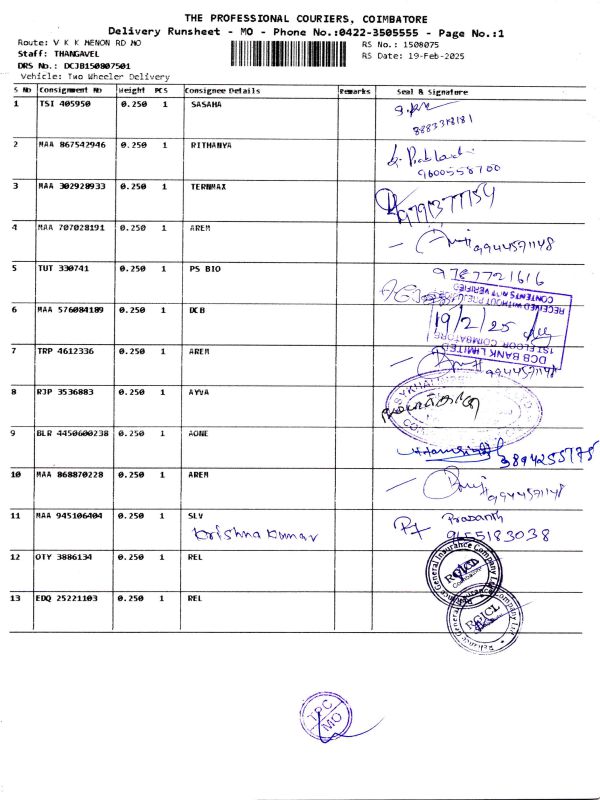 THE PROFESSIONAL COURIERS, COIMBATORE
Delivery Runsheet - MO - Phone No.:0422-3505555 - Page No.:1
Route: V K K MENON RD MO
RS No.: 1508075
Staff: THANGAVEL
RS Date: 19-Feb-2025
DRS No.: DCJB150807501
Vehicle: Two Wheeler Delivery
S No Consignment No Weight PCS Consignee Details Remarks Seal & Signature
1 TSI 405950 0.250 1 SASAHA
2 MAA 867542946 0.250 1 RITHANYA
9600558700
3 MAA 302928933 0.250 1 TERNMAX
9791377154
4 MAA 707028191 0.250 1 AREM
9944571148
5 TUT 330741 0.250 1 PS BIO
9787721616
6 MAA 576084189 0.250 1 DCB
CONTENTS NOT VERIFIED
RECEIVED WITHOUT
19/2/25
1ST FLOOR, COIMBATORE
DCB BANK LIMITED
7 TRP 4612336 0.250 1 AREM
9944571148
8 RJP 3536883 0.250 1 AYVA
9 BLR 4450600238 0.250 1 AONE
10 MAA 868870228 0.250 1 AREM
9944571148
11 MAA 945106404 0.250 1 SLV
Krishna Kumar
Prasanth
9655183038
12 OTY 3886134 0.250 1 REL
Reliance General Insurance Company Ltd
RGICL
13 EDQ 25221103 0.250 1 REL
Reliance General Insurance Company Ltd
RGICL
TPC
MO